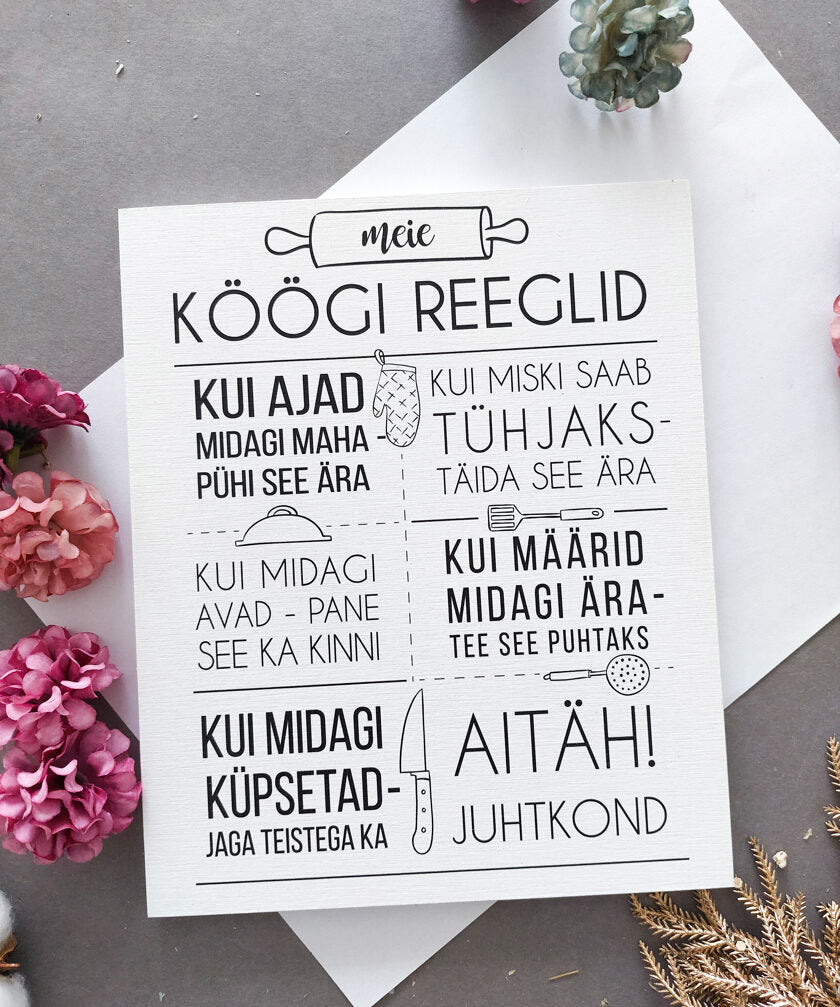 meie
KÖÖGI REEGLID
KUI AJAD
MIDAGI MAHA -
PÜHI SEE ÄRA
KUI MISKI SAAB
TÜHJAKS-
TÄIDA SEE ÄRA
KUI MIDAGI
AVAD - PANE
SEE KA KINNI
KUI MÄÄRID
MIDAGI ÄRA-
TEE SEE PUHTAKS
KUI MIDAGI
KÜPSETAD-
JAGA TEISTEGA KA
AITÄH!
JUHTKOND